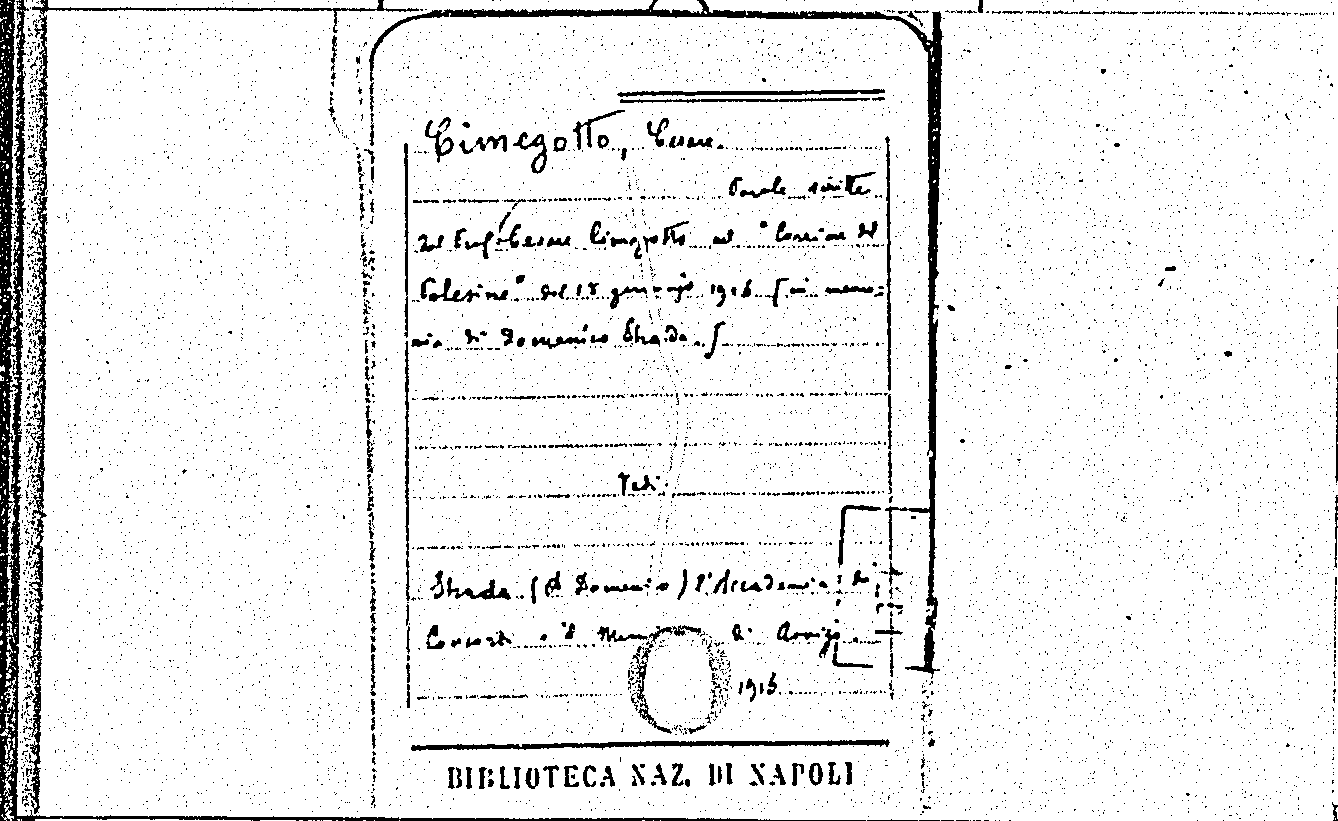 Cimegotto, Cesare.
Parole scritte
dal Prof. Cesare Cimegotto nel "Corriere del
Polesine" del 18 gennajo 1916 (in memo-
ria di Domenico Strada.)
Vedi:
Strada (Domenico) l'Accademia dei
Concordi e il di Rovigo.
1916
BIBLIOTECA NAZ. DI NAPOLI